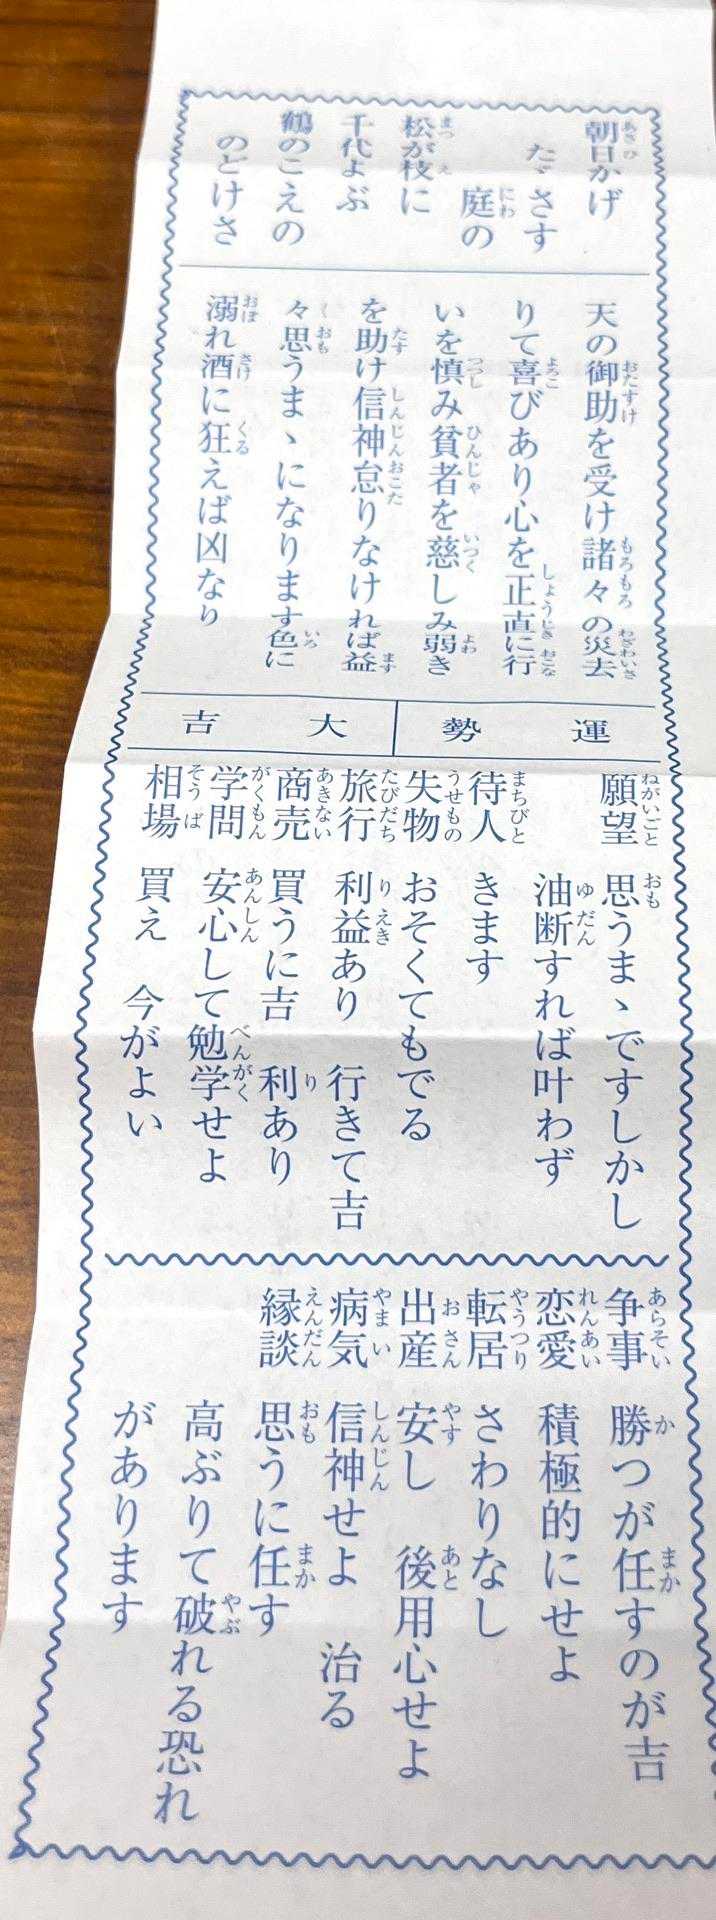 朝日かげ
たゞさす
庭の
松が枝に
千代よぶ
鶴のこえの
のどけさ
天の御助を受け諸々の災去
りて喜びあり心を正直に行
いを慎み貧者を慈しみ弱き
を助け信神怠りなければ益
々思うまゝになります色に
溺れ酒に狂えば凶なり
運勢 大吉
願望 思うまゝですしかし
油断すれば叶わず
待人 きます
失物 おそくてもでる
旅行 利益あり 行きて吉
商売 買うに吉 利あり
学問 安心して勉学せよ
相場 買え 今がよい
争事 勝つが任すのが吉
恋愛 積極的にせよ
転居 さわりなし
出産 安し 後用心せよ
病気 信神せよ 治る
縁談 思うに任す
高ぶりて破れる恐れ
があります